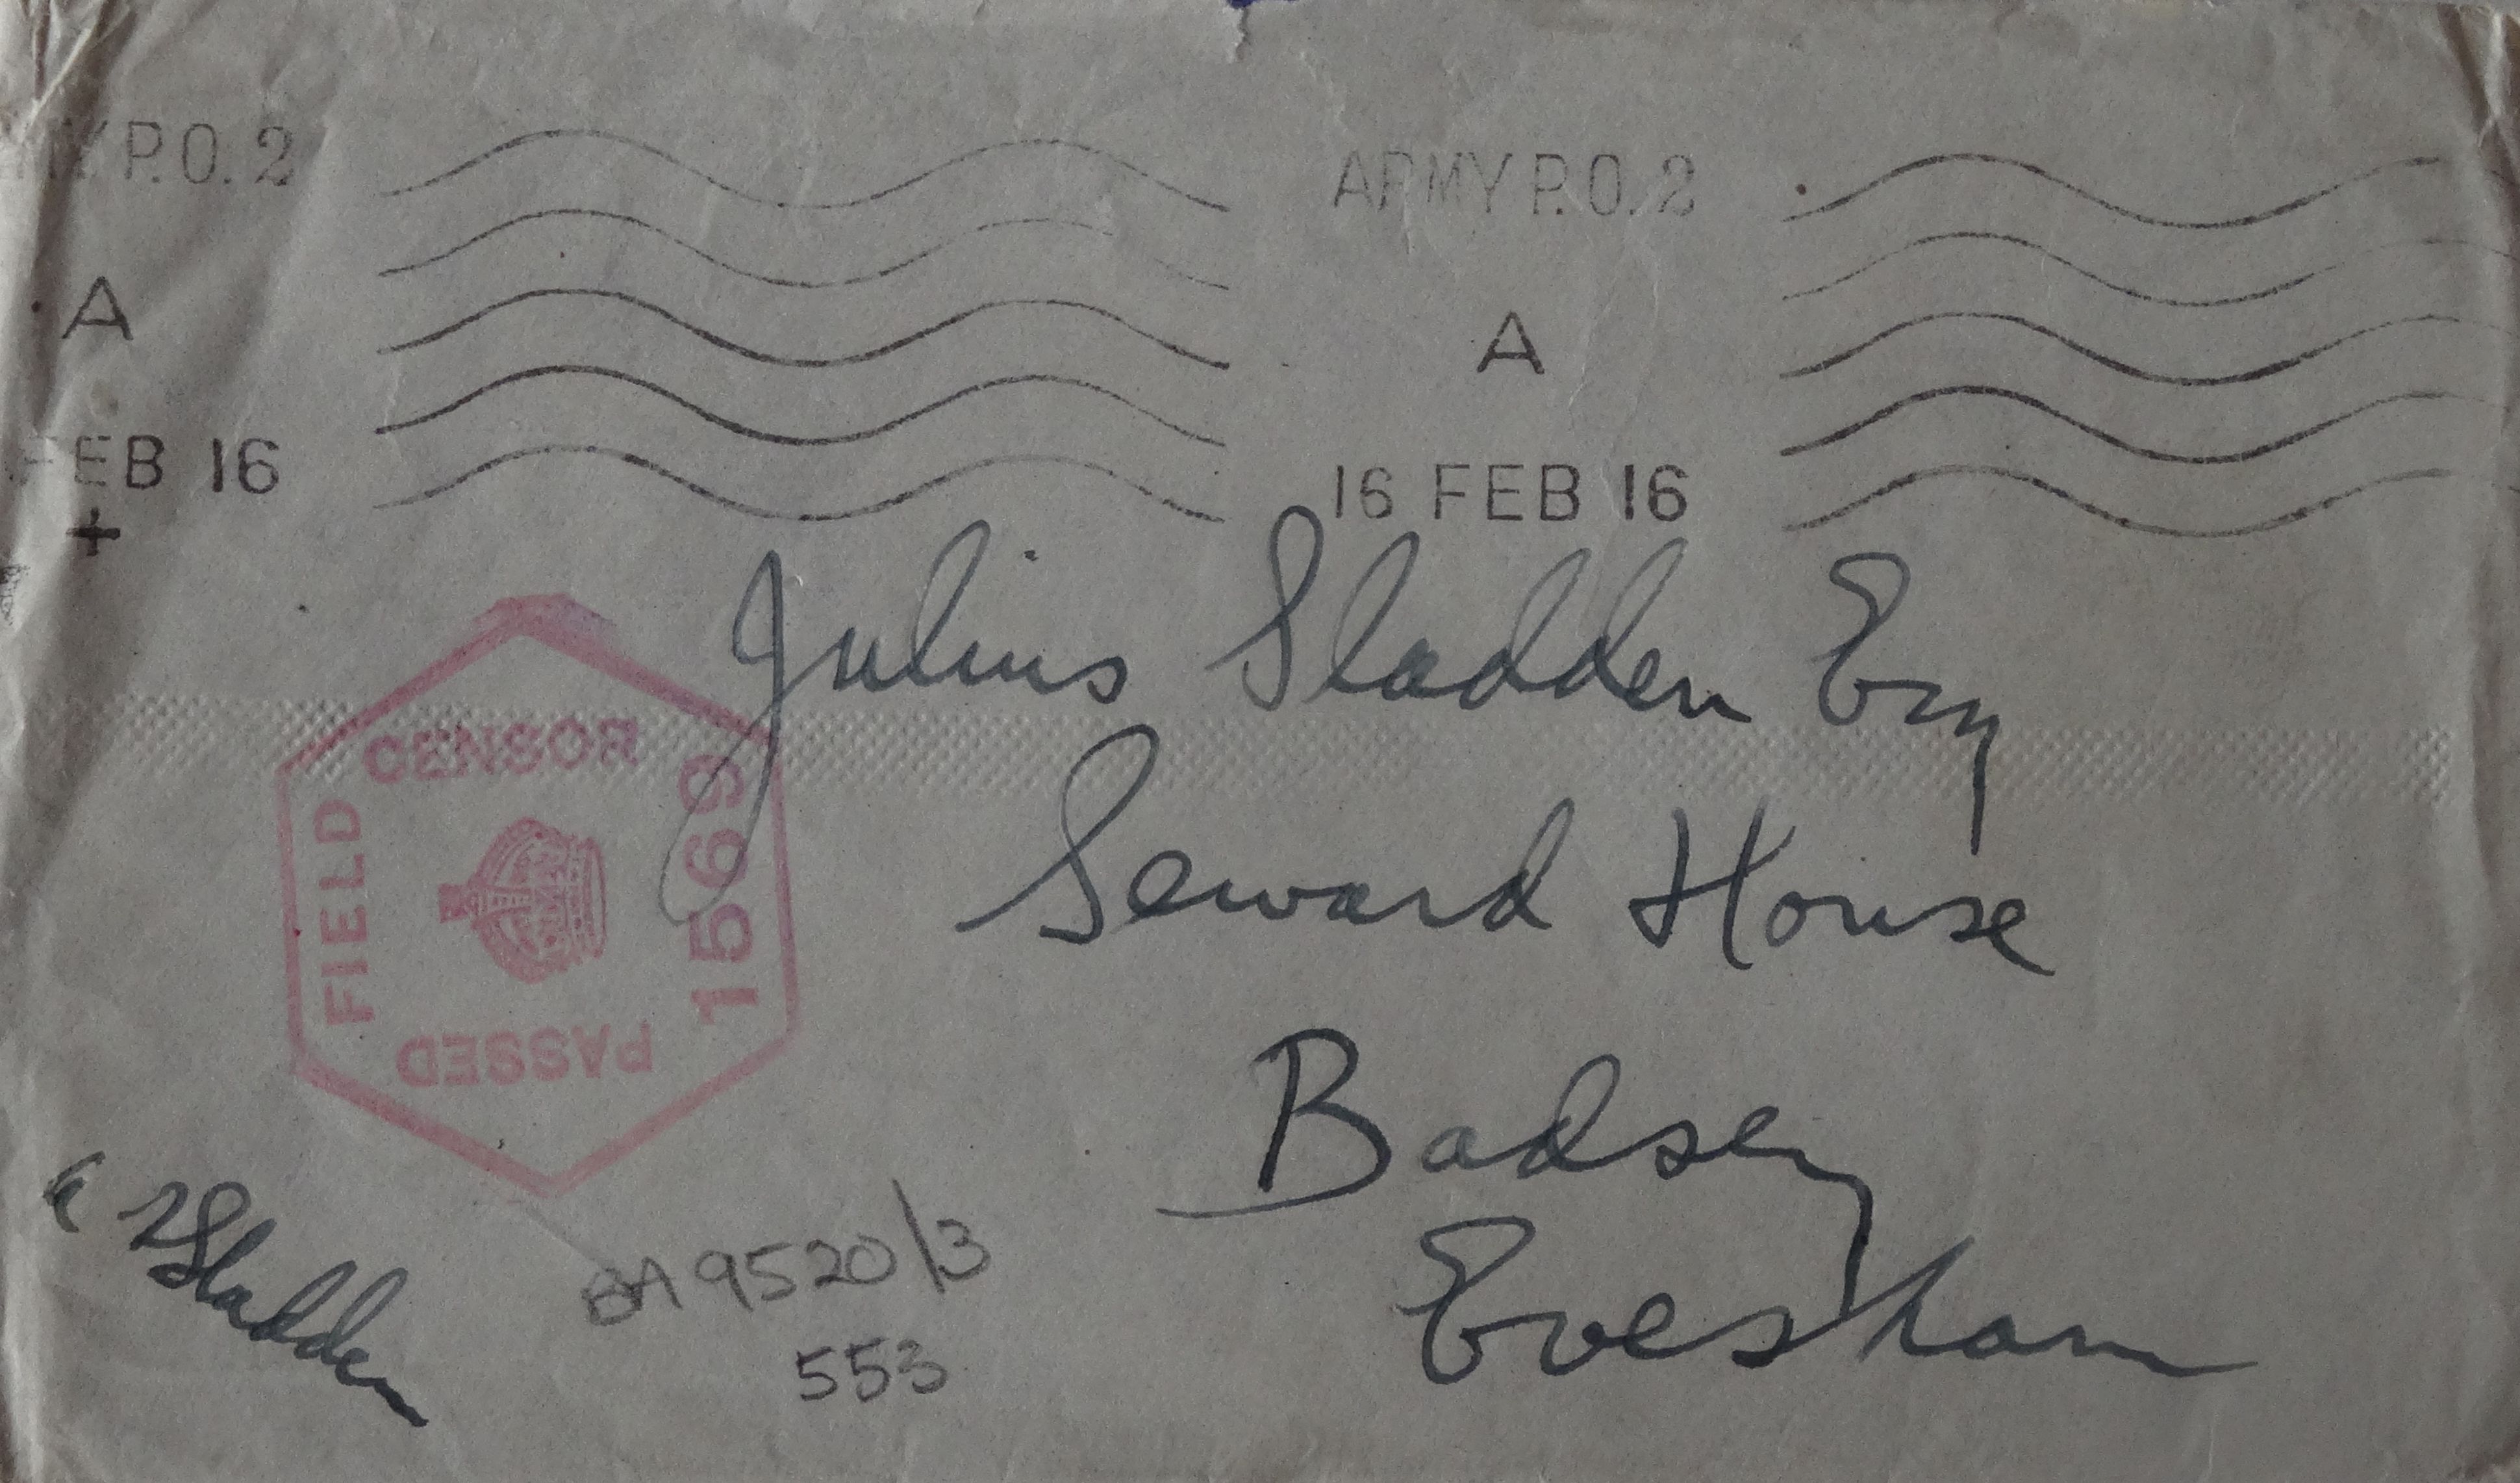 P.O. 2
ARMY P.O. 2
A
A
FEB 16
16 FEB 16
Julius Sladden Esq
Seward House
Badsey
Evesham
CENSOR
FIELD
1569
PASSED
Sladden
BA 9520/3
553